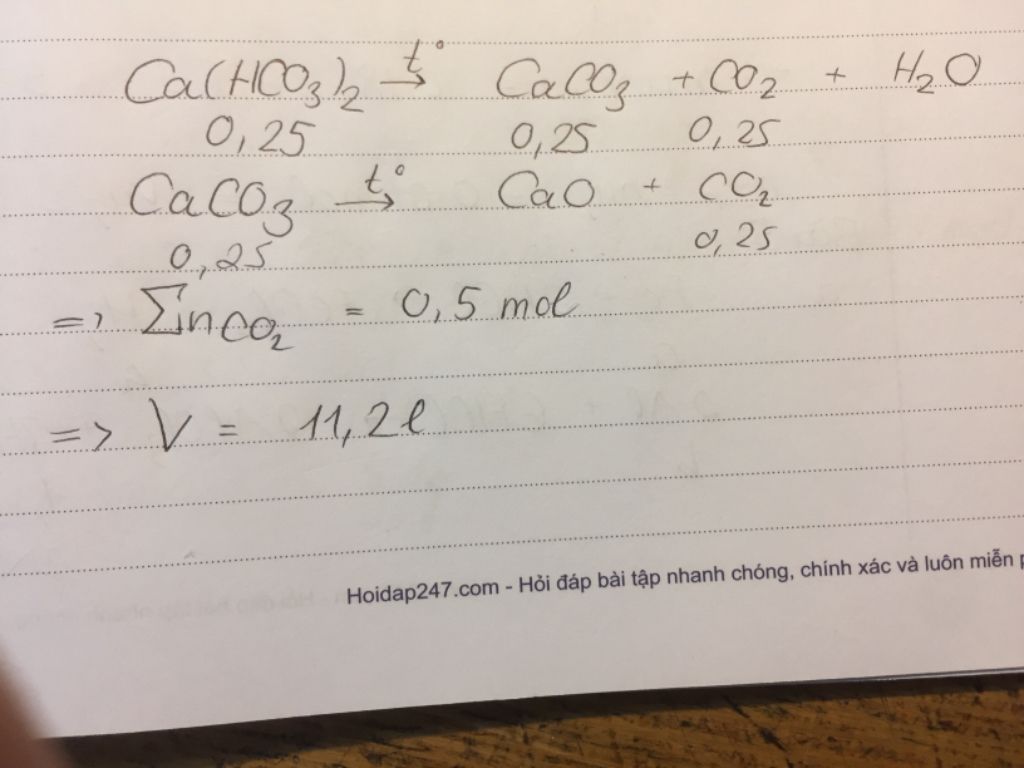 Ca(HCO₃)₂ →t° CaCO₃ + CO₂ + H₂O
0,25 0,25 0,25
CaCO₃ →t° CaO + CO₂
0,25 0,25
=> ΣnCO₂ = 0,5 mol
=> V = 11,2l
Hoidap247.com - Hỏi đáp bài tập nhanh chóng, chính xác và luôn miễn